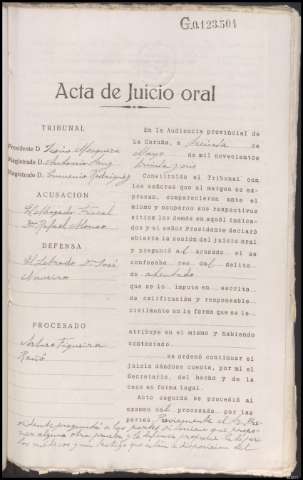 G.0.123.504
Acta de Juicio oral
TRIBUNAL
Presidente D.
Magistrado D. Antonio
Magistrado D. Rodríguez
ACUSACION
El Abogado Fiscal
Dn Rafael Alonso
DEFENSA
El Letrado Dn José
PROCESADO
Arturo Figueira
En la Audiencia provincial de
La Coruña, a treinta de
Mayo de mil novecientos
treinta y uno
Constituído el Tribunal con
los señores que al margen se ex-
presan, comparecieron ante el
mismo y ocuparon sus respectivos
sitios los demás en aquél indica-
dos y el señor Presidente declaró
abierta la sesión del juicio oral
y preguntó al acusado si se
confesaba reo del delito
de atentado
que se le imputa en escrito
de calificación y responsable
civilmente en la forma que se le
atribuye en el mismo y habiendo
contestado
se ordenó continuar el
juicio dándose cuenta, por mí el
Secretario, del hecho y de la
causa en forma legal.
Acto seguido se procedió al
examen del procesado por las
partes Previamente el Sr Pre-
sidente preguntó a las partes si tenían que propo-
ner alguna otra prueba y la defensa